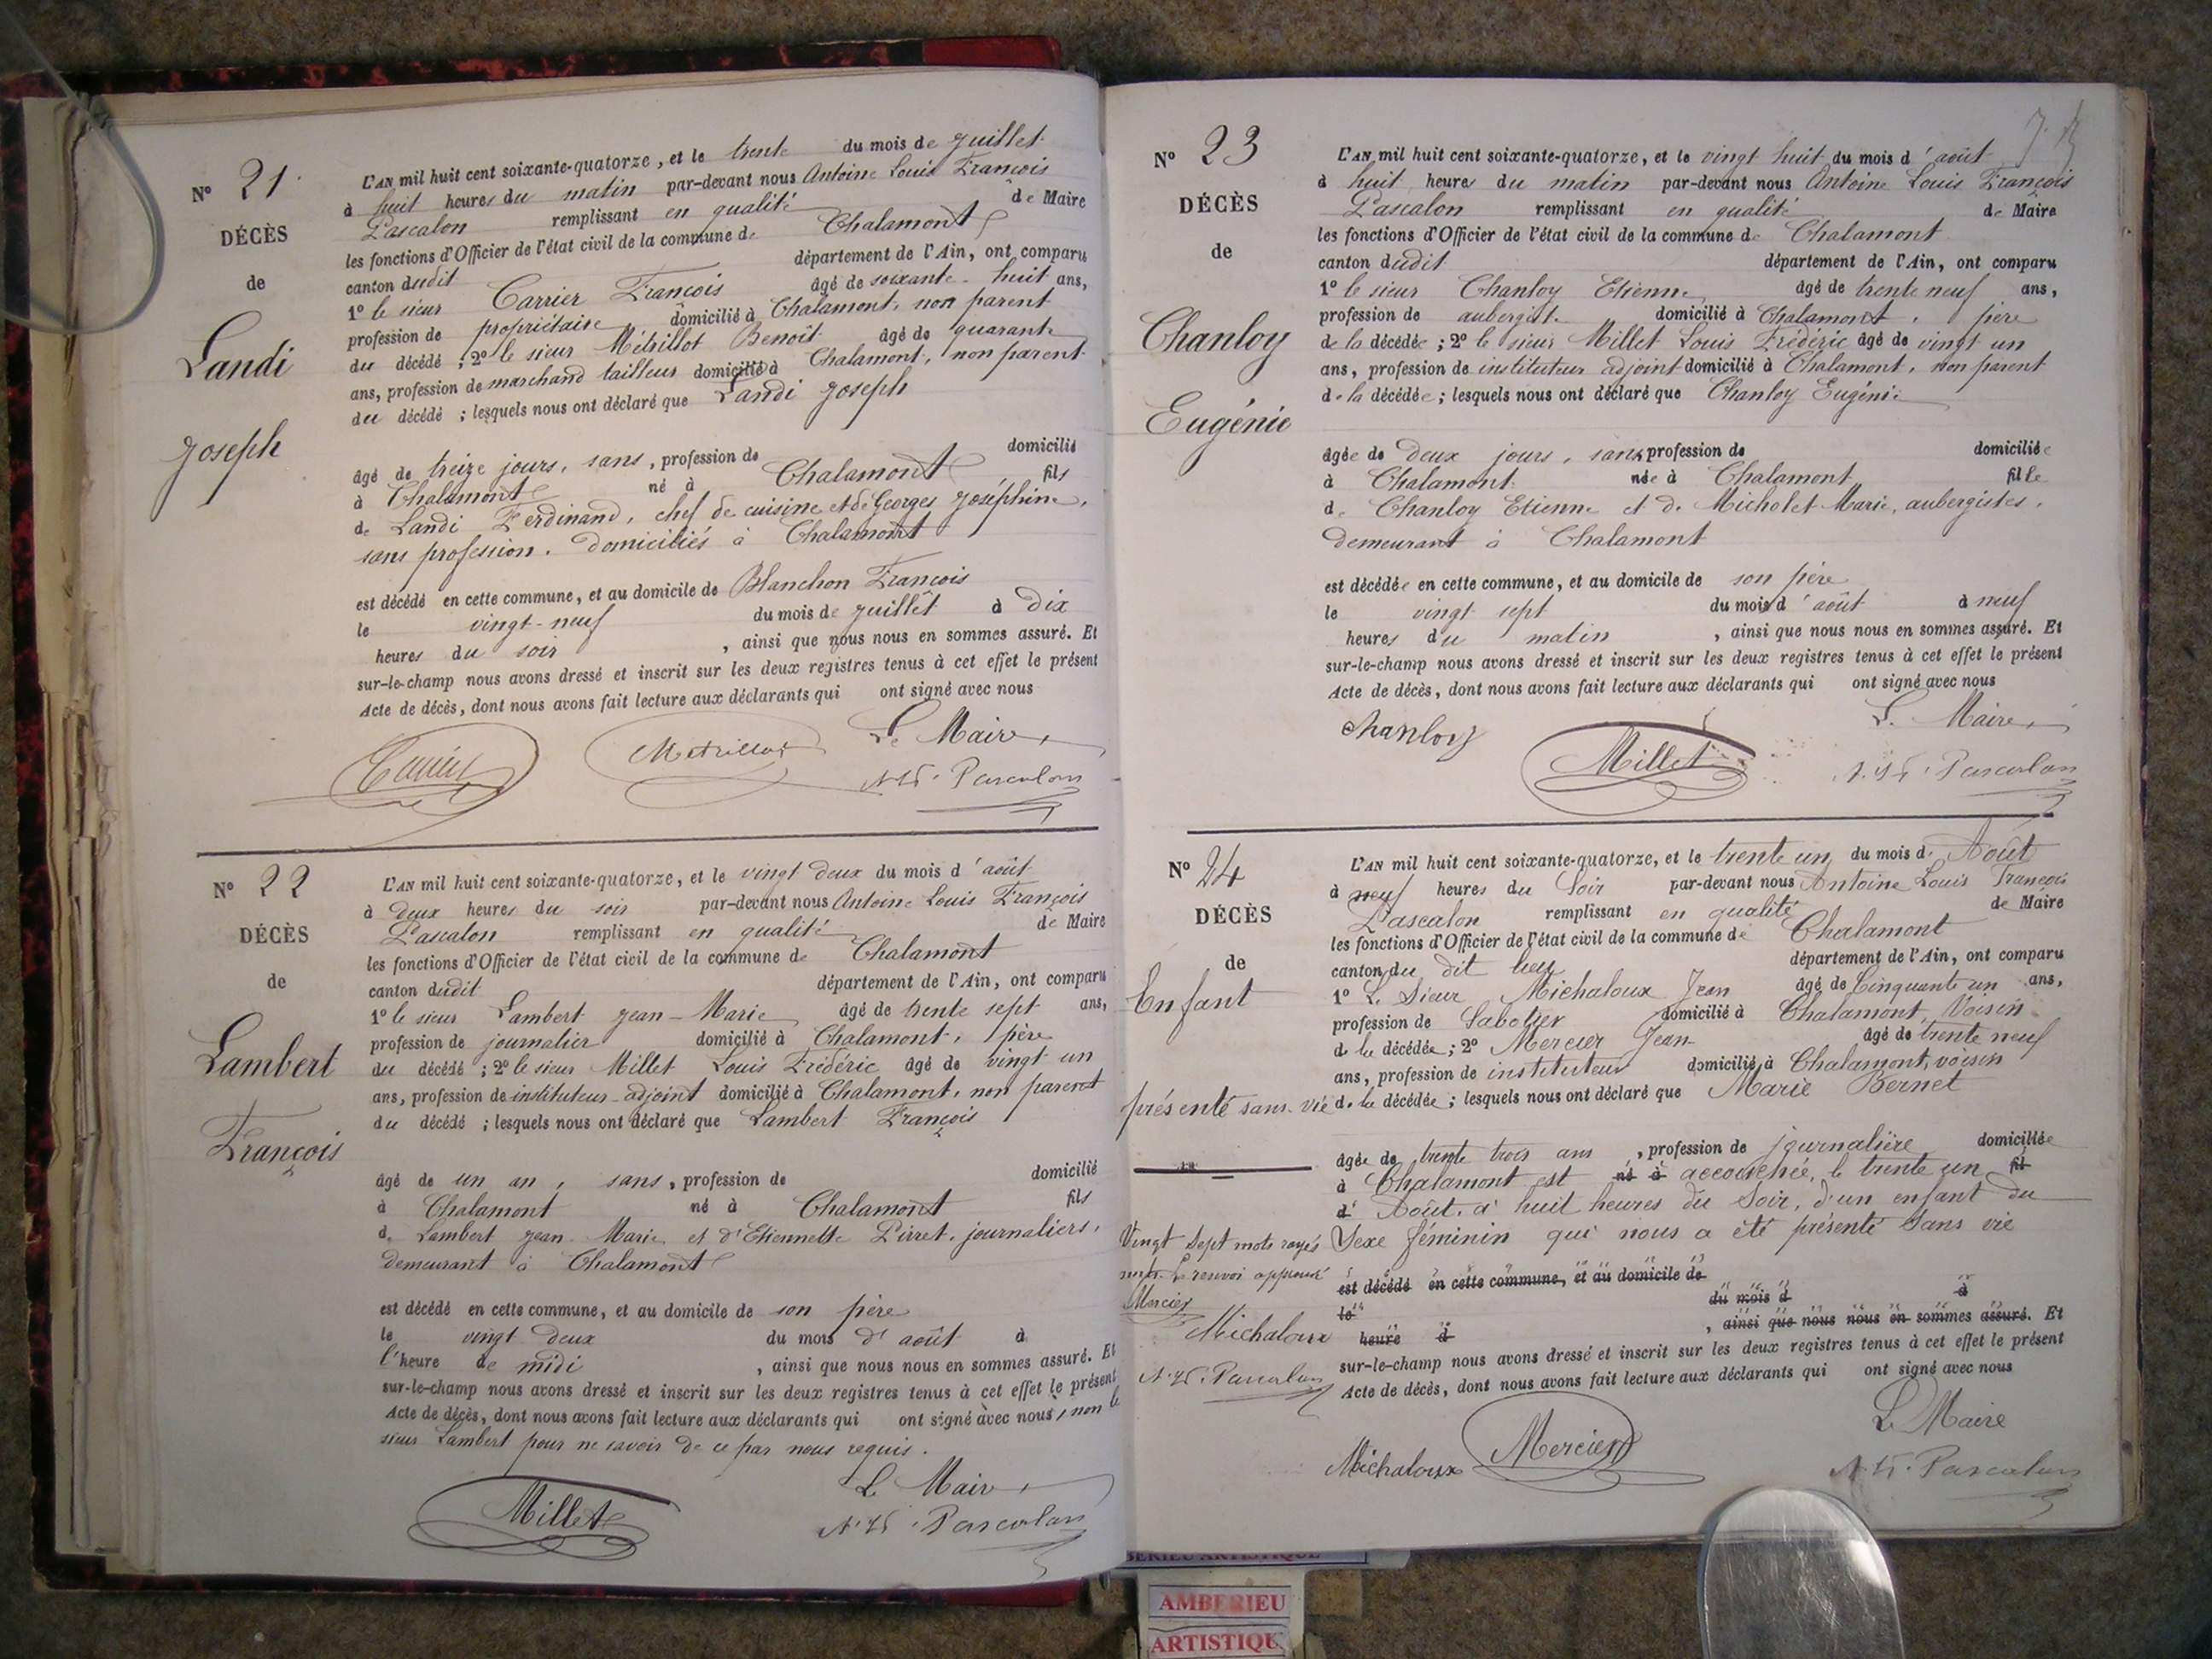 N° 21
DÉCÈS
de
Landi
Joseph
L'AN mil huit cent soixante-quatorze, et le trente du mois de juillet
à huit heures du matin par-devant nous Antoine Louis François
Pascalon remplissant en qualité de Maire
les fonctions d'Officier de l'état civil de la commune de Chalamont
canton dudit département de l'Ain, ont comparu
1° le sieur Carrier François âgé de soixante-huit ans,
profession de propriétaire domicilié à Chalamont, non parent
du décédé ; 2° le sieur Métrillot Benoît âgé de quarante
ans, profession de marchand tailleur domicilié à Chalamont, non parent
du décédé ; lesquels nous ont déclaré que Landi Joseph
âgé de treize jours, sans, profession de domicilié
à Chalamont né à Chalamont fils
de Landi Ferdinand, chef de cuisine et de Georges Joséphine,
sans profession. Domiciliés à Chalamont
est décédé en cette commune, et au domicile de Blanchon François
le vingt-neuf du mois de juillet à dix
heures du soir , ainsi que nous nous en sommes assuré. Et
sur-le-champ nous avons dressé et inscrit sur les deux registres tenus à cet effet le présent
Acte de décès, dont nous avons fait lecture aux déclarants qui ont signé avec nous
Le Maire,
Carrier Métrillot Pascalon
N° 22
DÉCÈS
de
Lambert
François
L'AN mil huit cent soixante-quatorze, et le vingt deux du mois d'août
à deux heures du soir par-devant nous Antoine Louis François
Pascalon remplissant en qualité de Maire
les fonctions d'Officier de l'état civil de la commune de Chalamont
canton dudit département de l'Ain, ont comparu
1° le sieur Lambert Jean-Marie âgé de trente sept ans,
profession de journalier domicilié à Chalamont, père
du décédé ; 2° le sieur Millet Louis Frédéric âgé de vingt un
ans, profession de instituteur-adjoint domicilié à Chalamont, non parent
du décédé ; lesquels nous ont déclaré que Lambert François
âgé de un an, sans, profession de domicilié
à Chalamont né à Chalamont fils
de Lambert Jean Marie et d'Etiennette Pirret, journaliers,
demeurant à Chalamont
est décédé en cette commune, et au domicile de son père
le vingt deux du mois d'août à
l'heure de midi , ainsi que nous nous en sommes assuré. Et
sur-le-champ nous avons dressé et inscrit sur les deux registres tenus à cet effet le présent
Acte de décès, dont nous avons fait lecture aux déclarants qui ont signé avec nous, non le
sieur Lambert pour ne savoir de ce par nous requis.
Le Maire,
Millet Pascalon
N° 23
DÉCÈS
de
Chanloy
Eugénie
L'AN mil huit cent soixante-quatorze, et le vingt huit du mois d'août
à huit heures du matin par-devant nous Antoine Louis François
Pascalon remplissant en qualité de Maire
les fonctions d'Officier de l'état civil de la commune de Chalamont
canton dudit département de l'Ain, ont comparu
1° le sieur Chanloy Etienne âgé de trente neuf ans,
profession de aubergist. domicilié à Chalamont, père
de la décédée ; 2° le sieur Millet Louis Frédéric âgé de vingt un
ans, profession de instituteur adjoint domicilié à Chalamont, non parent
de la décédée ; lesquels nous ont déclaré que Chanloy Eugénie
âgée de deux jours, sans, profession de domiciliée
à Chalamont née à Chalamont fille
de Chanloy Etienne et de Micholet Marie, aubergistes,
demeurant à Chalamont
est décédée en cette commune, et au domicile de son père
le vingt sept du mois d'août à neuf
heures du matin , ainsi que nous nous en sommes assuré. Et
sur-le-champ nous avons dressé et inscrit sur les deux registres tenus à cet effet le présent
Acte de décès, dont nous avons fait lecture aux déclarants qui ont signé avec nous
Le Maire,
Chanloy Millet Pascalon
N° 24
DÉCÈS
de
Enfant
présenté sans vie
Vingt sept mots rayés
nuls. Le renvoi approuvé
Mercier
Michaloux
Pascalon
L'AN mil huit cent soixante-quatorze, et le trente un du mois d'Août
à neuf heures du Soir par-devant nous Antoine Louis François
Pascalon remplissant en qualité de Maire
les fonctions d'Officier de l'état civil de la commune de Chalamont
canton du dit lieu département de l'Ain, ont comparu
1° Le Sieur Michaloux Jean âgé de Cinquante un ans,
profession de Sabotier domicilié à Chalamont, Voisin
de la décédée ; 2° Mercier Jean âgé de trente neuf
ans, profession de instituteur domicilié à Chalamont, voisin
de la décédée ; lesquels nous ont déclaré que Marie Bernet
âgée de trente trois ans, profession de journalière domiciliée
à Chalamont est né à accouchée, le trente un fil
d' Août, à huit heures du Soir, d'un enfant du
Sexe féminin qui nous a été présenté sans vie
est décédé en cette commune, et au domicile de
le du mois d à
heure d , ainsi que nous nous en sommes assuré. Et
sur-le-champ nous avons dressé et inscrit sur les deux registres tenus à cet effet le présent
Acte de décès, dont nous avons fait lecture aux déclarants qui ont signé avec nous
Le Maire
Michaloux Mercier Pascalon
AMBERIEU
ARTISTIQU